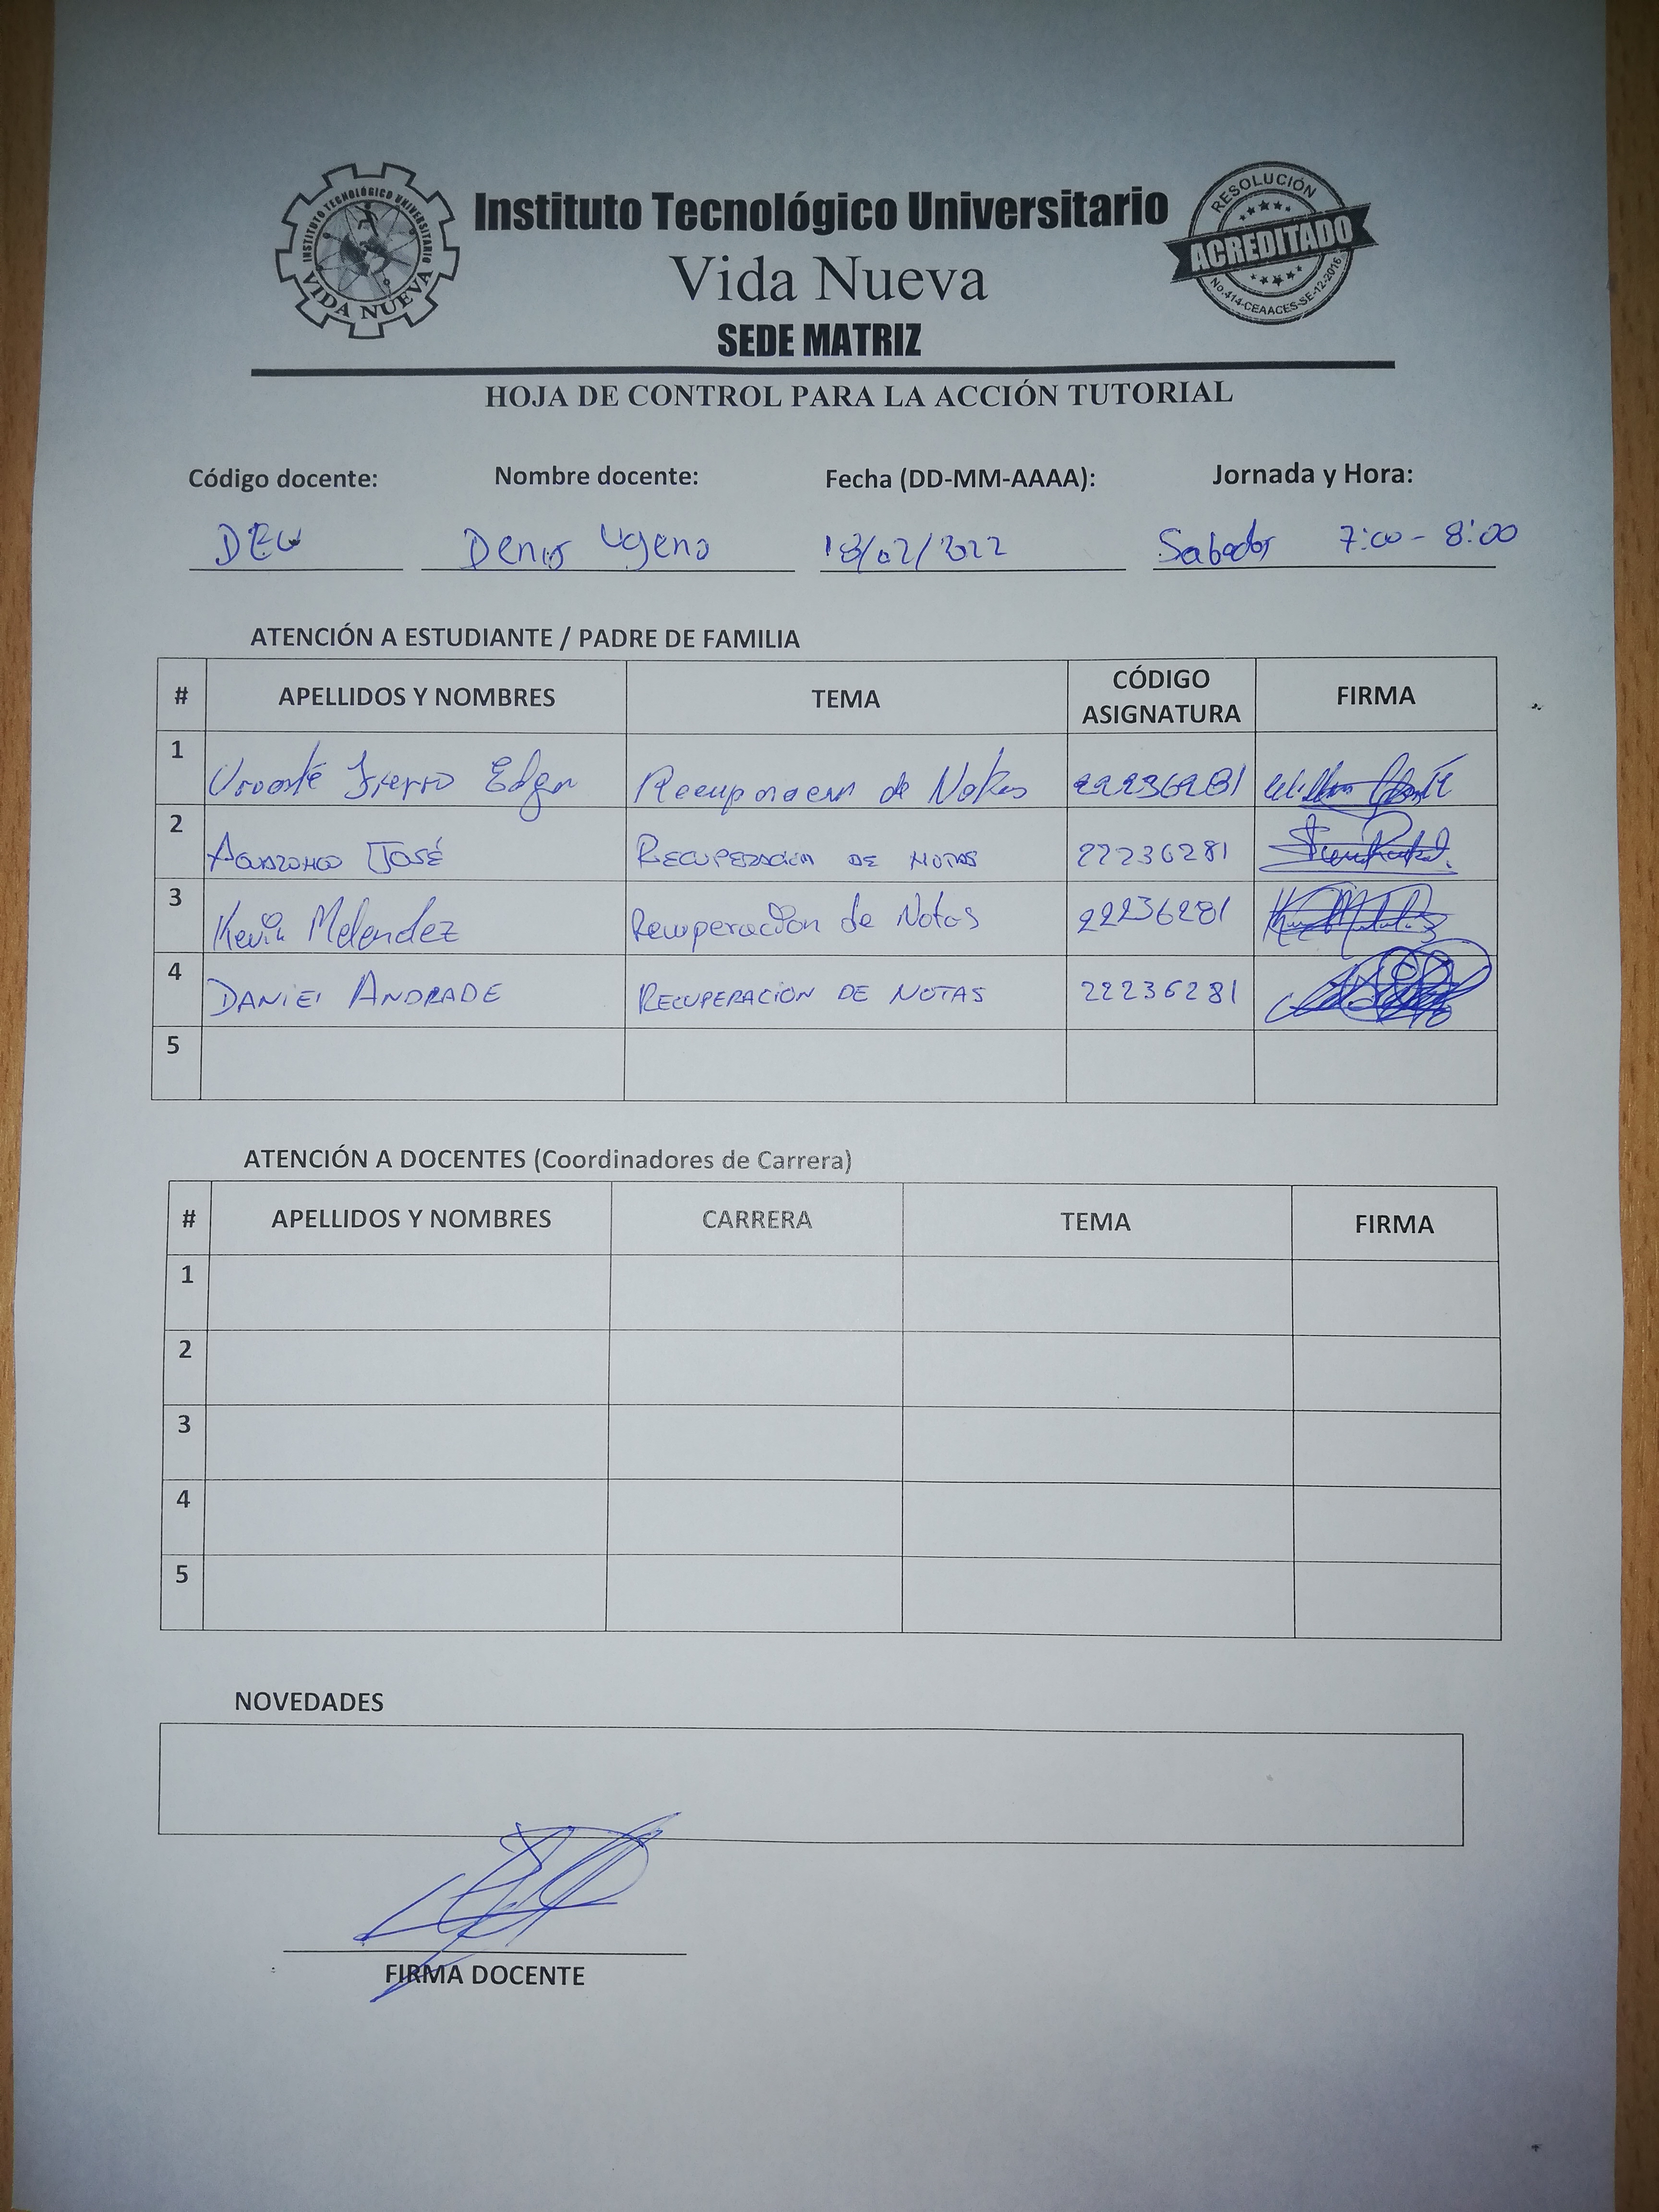 INSTITUTO TECNOLÓGICO UNIVERSITARIO
VIDA NUEVA
Instituto Tecnológico Universitario
Vida Nueva
SEDE MATRIZ
RESOLUCIÓN
ACREDITADO
No.414-CEAACES-SE-12-2016
HOJA DE CONTROL PARA LA ACCIÓN TUTORIAL
Código docente: Nombre docente: Fecha (DD-MM-AAAA): Jornada y Hora:
DEU Denis Ugeno 18/02/2022 Sabados 7:00 - 8:00
ATENCIÓN A ESTUDIANTE / PADRE DE FAMILIA
# APELLIDOS Y NOMBRES TEMA CÓDIGO ASIGNATURA FIRMA
1 Edgar Recuperacion de Notas 22236281
2 José RECUPERACION DE NOTAS 22236281
3 Kevin Melendez Recuperación de Notas 22236281
4 DANIEL ANDRADE RECUPERACIÓN DE NOTAS 22236281
5
ATENCIÓN A DOCENTES (Coordinadores de Carrera)
# APELLIDOS Y NOMBRES CARRERA TEMA FIRMA
1
2
3
4
5
NOVEDADES
FIRMA DOCENTE